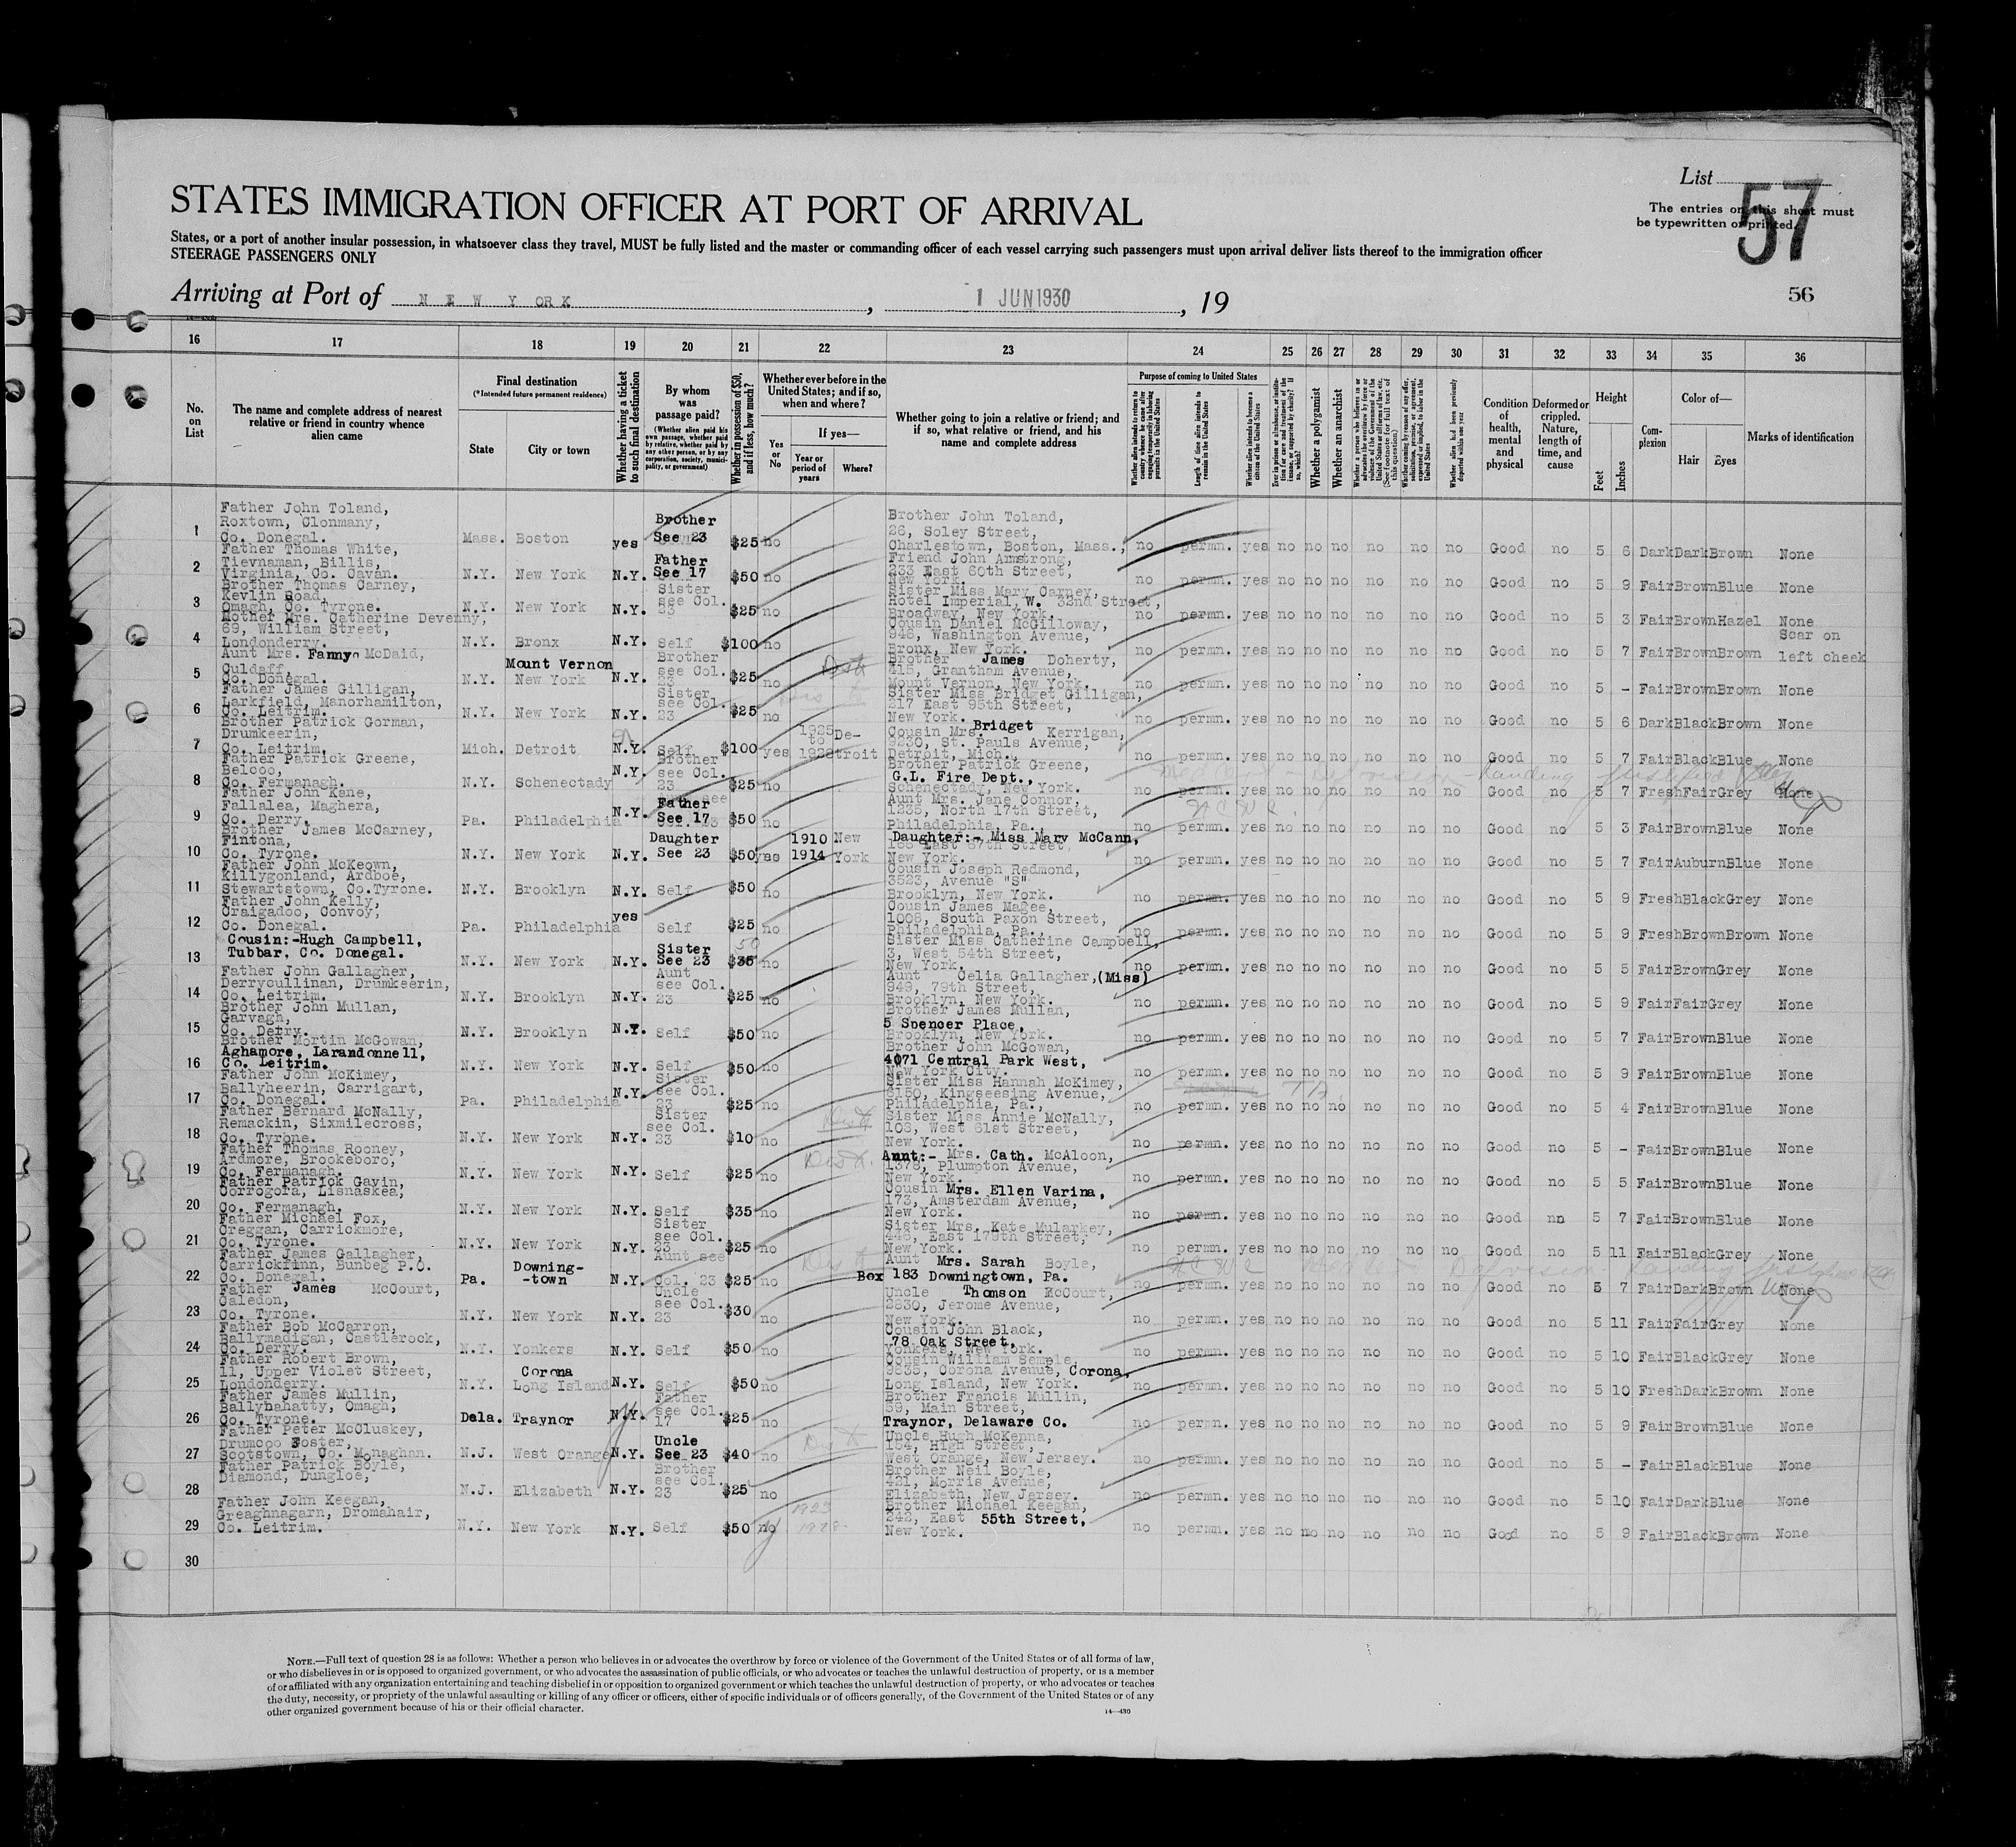 List
57
The entries on this sheet must
be typewritten or printed.
STATES IMMIGRATION OFFICER AT PORT OF ARRIVAL
States, or a port of another insular possession, in whatsoever class they travel, MUST be fully listed and the master or commanding officer of each vessel carrying such passengers must upon arrival deliver lists thereof to the immigration officer
STEERAGE PASSENGERS ONLY
Arriving at Port of NEW YORK, 1 JUN 1930, 19
56
16 17 18 19 20 21 22 23 24 25 26 27 28 29 30 31 32 33 34 35 36
No. on List
The name and complete address of nearest relative or friend in country whence alien came
Final destination
(*Intended future permanent residence)
State
City or town
Whether having a ticket to such final destination
By whom was passage paid?
(Whether alien paid his own passage, whether paid by relative, whether paid by any other person, or by any corporation, society, municipality, or government)
Whether in possession of $50, and if less, how much?
Whether ever before in the United States; and if so, when and where?
Yes or No
If yes—
Year or period of years
Where?
Whether going to join a relative or friend; and if so, what relative or friend, and his name and complete address
Purpose of coming to United States
Whether a polygamist
Whether an anarchist
Condition of health, mental and physical
Deformed or crippled. Nature, length of time, and cause
Height
Feet
Inches
Complexion
Color of—
Hair
Eyes
Marks of identification
1 Father John Toland, Roxtown, Clonmany, Co. Donegal. Mass. Boston yes Brother See 23 $25 no Brother John Toland, 26, Soley Street, Charlestown, Boston, Mass., no permn. yes no no no no no no Good no 5 6 Dark Dark Brown None
2 Father Thomas White, Tievnaman, Billis, Virginia, Co. Cavan. N.Y. New York N.Y. Father See 17 $50 no Friend John Armstrong, 233 East 60th Street, New York. no permn. yes no no no no no no Good no 5 9 Fair Brown Blue None
3 Brother Thomas Carney, Kevlin Road, Omagh, Co. Tyrone. N.Y. New York N.Y. Sister see Col. 23 $25 no Sister Miss Mary Carney, Hotel Imperial, W. 32nd Street, Broadway, New York. no permn. yes no no no no no no Good no 5 3 Fair Brown Hazel None
4 Mother Mrs. Catherine Devenny, 69, William Street, Londonderry. N.Y. Bronx N.Y. Self $100 no Cousin Daniel McGilloway, 948, Washington Avenue, Bronx, New York. no permn. yes no no no no no no Good no 5 7 Fair Brown Brown Scar on left cheek
5 Aunt Mrs. Fanny McDaid, Culdaff, Co. Donegal. N.Y. Mount Vernon New York N.Y. Brother see Col. 23 $25 no Brother James Doherty, 415, Grantham Avenue, Mount Vernon, New York. no permn. yes no no no no no no Good no 5 - Fair Brown Brown None
6 Father James Gilligan, Larkfield, Manorhamilton, Co. Leitrim. N.Y. New York N.Y. Sister see Col. 23 $25 no Sister Miss Bridget Gilligan, 217 East 95th Street, New York. no permn. yes no no no no no no Good no 5 6 Dark Black Brown None
7 Brother Patrick Gorman, Drumkeerin, Co. Leitrim. Mich. Detroit N.Y. Self $100 yes 1925 to 1928 Detroit Cousin Mrs. Bridget Kerrigan, 9230, St. Pauls Avenue, Detroit, Mich., no permn. yes no no no no no no Good no 5 7 Fair Black Blue None
8 Father Patrick Greene, Belcoo, Co. Fermanagh. N.Y. Schenectady N.Y. Brother see Col. 23 $25 no Brother Patrick Greene, G.L. Fire Dept., Schenectady, New York. no permn. yes no no no no no no Good no 5 7 Fresh Fair Grey None
9 Father John Kane, Fallalea, Maghera, Co. Derry. Pa. Philadelphia N.Y. Father See 17 $50 no Aunt Mrs. Jane Connor, 1235, North 17th Street, Philadelphia, Pa., no permn. yes no no no no no no Good no 5 3 Fair Brown Blue None
10 Brother James McCarney, Fintona, Co. Tyrone. N.Y. New York N.Y. Daughter See 23 $50 yes 1910 1914 New York Daughter:- Miss Mary McCann, East 87th Street, New York. no permn. yes no no no no no no Good no 5 7 Fair Auburn Blue None
11 Father John McKeown, Killygonland, Ardboe, Stewartstown, Co.Tyrone. N.Y. Brooklyn N.Y. Self $50 no Cousin Joseph Redmond, 3523, Avenue "S" Brooklyn, New York. no permn. yes no no no no no no Good no 5 9 Fresh Black Grey None
12 Father John Kelly, Craigadoo, Convoy, Co. Donegal. Pa. Philadelphia yes Self $25 no Cousin James Magee, 1008, South Paxon Street, Philadelphia, Pa., no permn. yes no no no no no no Good no 5 9 Fresh Brown Brown None
13 Cousin:-Hugh Campbell, Tubbar, Co. Donegal. N.Y. New York N.Y. Sister See 23 50 $35 no Sister Miss Catherine Campbell, 3, West 54th Street, New York. no permn. yes no no no no no no Good no 5 5 Fair Brown Grey None
14 Father John Gallagher, Derrycullinan, Drumkeerin, Co. Leitrim. N.Y. Brooklyn N.Y. Aunt see Col. 23 $25 no Aunt Celia Gallagher, (Miss) 949, 79th Street, Brooklyn, New York. no permn. yes no no no no no no Good no 5 9 Fair Fair Grey None
15 Brother John Mullan, Garvagh, Co. Derry. N.Y. Brooklyn N.Y. Self $50 no Brother James Mullan, 5 Spencer Place, Brooklyn, New York. no permn. yes no no no no no no Good no 5 7 Fair Brown Blue None
16 Brother Mortin McGowan, Aghamore, Larandonnell, Co. Leitrim. N.Y. New York N.Y. Self $50 no Brother John McGowan, 4071 Central Park West, New York City. no permn. yes no no no no no no Good no 5 9 Fair Brown Blue None
17 Father John McKimey, Ballyheerin, Carrigart, Co. Donegal. Pa. Philadelphia N.Y. Sister see Col. 23 $25 no Sister Miss Hannah McKimey, 6150, Kingseesing Avenue, Philadelphia, Pa., no permn. yes no no no no no no Good no 5 4 Fair Brown Blue None
18 Father Bernard McNally, Remackin, Sixmilecross, Co. Tyrone. N.Y. New York N.Y. Sister see Col. 23 $10 no Sister Miss Annie McNally, 108, West 61st Street, New York. no permn. yes no no no no no no Good no 5 - Fair Brown Blue None
19 Father Thomas Rooney, Ardmore, Brookeboro, Co. Fermanagh. N.Y. New York N.Y. Self $25 no Aunt:- Mrs. Cath. McAloon, 1378, Plumpton Avenue, New York. no permn. yes no no no no no no Good no 5 5 Fair Brown Blue None
20 Father Patrick Gavin, Corrogora, Lisnaskea, Co. Fermanagh. N.Y. New York N.Y. Self $35 no Cousin Mrs. Ellen Varina, 173, Amsterdam Avenue, New York. no permn. yes no no no no no no Good nn 5 7 Fair Brown Blue None
21 Father Michael Fox, Creggan, Carrickmore, Co. Tyrone. N.Y. New York N.Y. Sister see Col. 23 $25 no Sister Mrs. Kate Mularkey, 446, East 179th Street, New York. no permn. yes no no no no no no Good no 5 11 Fair Black Grey None
22 Father James Gallagher, Carrickfinn, Bunbeg P.O. Co. Donegal. Pa. Downing- -town N.Y. Aunt see Col. 23 $25 no Aunt Mrs. Sarah Boyle, Box 183 Downingtown, Pa. no permn. yes no no no no no no Good no 5 7 Fair Dark Brown None
23 Father James McCourt, Caledon, Co. Tyrone. N.Y. New York N.Y. Uncle see Col. 23 $30 no Uncle Thomson McCourt, 2830, Jerome Avenue, New York. no permn. yes no no no no no no Good no 5 11 Fair Fair Grey None
24 Father Bob McCarron, Ballymadigan, Castlerock, Co. Derry. N.Y. Yonkers N.Y. Self $50 no Cousin John Black, 78 Oak Street, Yonkers, New York. no permn. yes no no no no no no Good no 5 10 Fair Black Grey None
25 Father Robert Brown, 11, Upper Violet Street, Londonderry. N.Y. Corona Long Island N.Y. Self $50 no Cousin William Semple, 9835, Corona Avenue, Corona, Long Island, New York. no permn. yes no no no no no no Good no 5 10 Fresh Dark Brown None
26 Father James Mullin, Ballynahatty, Omagh, Co. Tyrone. Dela. Traynor N.Y. Father see Col. 17 $25 no Brother Francis Mullin, 59, Main Street, Traynor, Delaware Co. no permn. yes no no no no no no Good no 5 9 Fair Brown Blue None
27 Father Peter McCluskey, Drumcoo Foster, Scotstown, Co. Monaghan. N.J. West Orange N.Y. Uncle See 23 $40 no Uncle Hugh McKenna, 154, High Street, West Orange, New Jersey. no permn. yes no no no no no no Good no 5 - Fair Black Blue None
28 Father Patrick Boyle, Diamond, Dungloe, N.J. Elizabeth N.Y. Brother see Col. 23 $25 no Brother Neil Boyle, 421, Morris Avenue, Elizabeth, New Jersey. no permn. yes no no no no no no Good no 5 10 Fair Dark Blue None
29 Father John Keegan, Greaghnagarn, Dromahair, Co. Leitrim. N.Y. New York N.Y. Self $50 no 1923 1928 Brother Michael Keegan, 242, East 55th Street, New York. no permn. yes no no no no no no Good no 5 9 Fair Black Brown None
30
NOTE.—Full text of question 28 is as follows: Whether a person who believes in or advocates the overthrow by force or violence of the Government of the United States or of all forms of law,
or who disbelieves in or is opposed to organized government, or who advocates the assassination of public officials, or who advocates or teaches the unlawful destruction of property, or is a member
of or affiliated with any organization entertaining and teaching disbelief in or opposition to organized government or which teaches the unlawful destruction of property, or who advocates or teaches
the duty, necessity, or propriety of the unlawful assaulting or killing of any officer or officers, either of specific individuals or of officers generally, of the Government of the United States or of any
other organized government because of his or their official character.
14—430